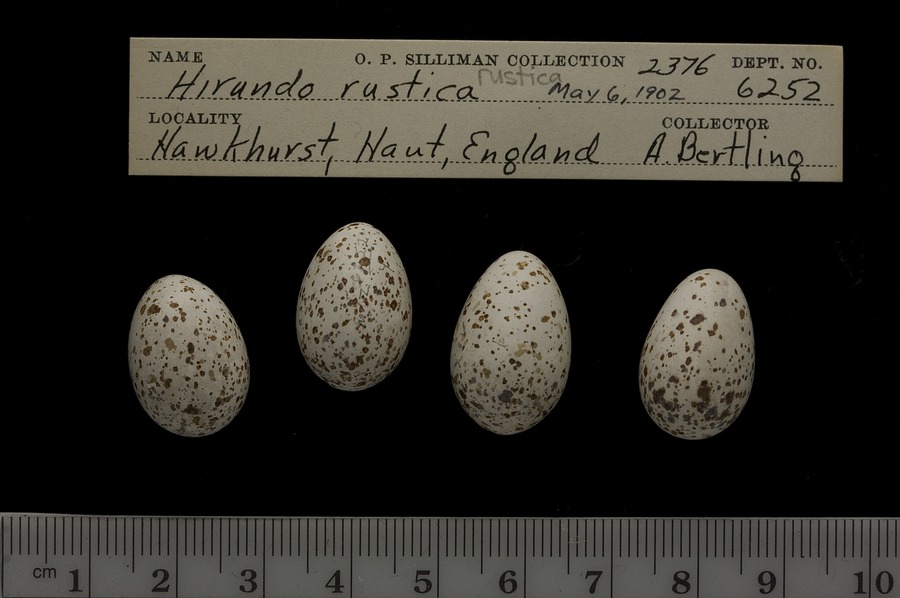 NAME O. P. SILLIMAN COLLECTION 2376 DEPT. NO.
Hirundo rustica rustica May 6, 1902 6252
LOCALITY COLLECTOR
Hawkhurst, Haut, England A. Bertling
cm 1 2 3 4 5 6 7 8 9 10